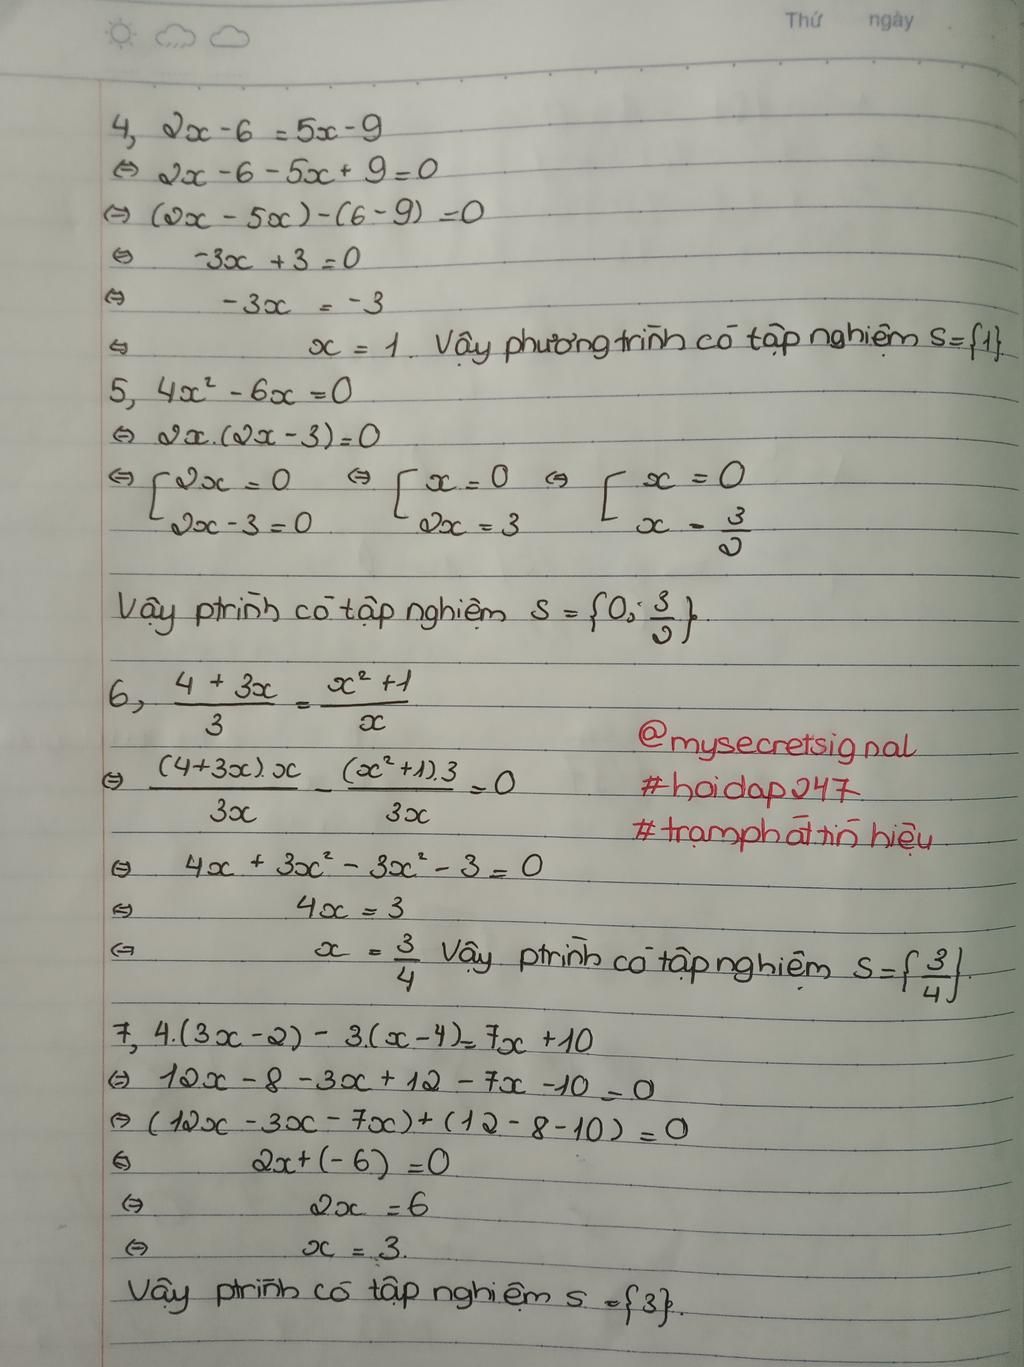 Thứ ngày
4, 2x - 6 = 5x - 9
⇔ 2x - 6 - 5x + 9 = 0
⇔ (2x - 5x) - (6 - 9) = 0
⇔ -3x + 3 = 0
⇔ -3x = -3
⇔ x = 1. Vậy phương trình có tập nghiệm S = {1}.
5, 4x² - 6x = 0
⇔ 2x.(2x - 3) = 0
⇔ [ 2x = 0 ⇔ [ x = 0 ⇔ [ x = 0
2x - 3 = 0 2x = 3 x = 3/2
Vậy ptrình có tập nghiệm S = {0; 3/2}.
6, (4 + 3x)/3 = (x² + 1)/x
⇔ ((4 + 3x).x)/3x - ((x² + 1).3)/3x = 0
⇔ 4x + 3x² - 3x² - 3 = 0
⇔ 4x = 3
⇔ x = 3/4 Vậy ptrình có tập nghiệm S = {3/4}.
@mysecretsignal
#hoidap247
#trạmpháttínhiệu
7, 4.(3x - 2) - 3.(x - 4) = 7x + 10
⇔ 12x - 8 - 3x + 12 - 7x - 10 = 0
⇔ (12x - 3x - 7x) + (12 - 8 - 10) = 0
⇔ 2x + (-6) = 0
⇔ 2x = 6
⇔ x = 3.
Vậy ptrình có tập nghiệm S = {3}.